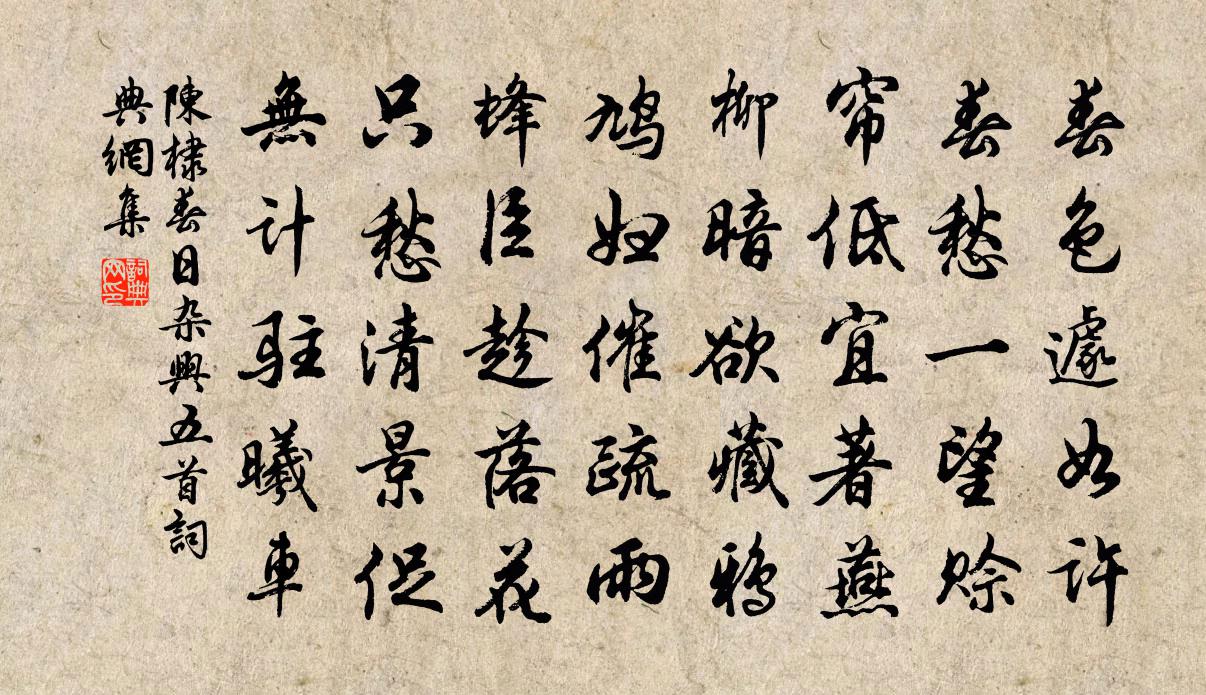 春色遽如許
春愁一望賒
帘低宜著燕
柳暗欲藏鴉
鳩婦催疏雨
蜂臣趁落花
只愁清景促
無計駐曦車
陳棣春日杂興五首詞
典網集
詞典
网印